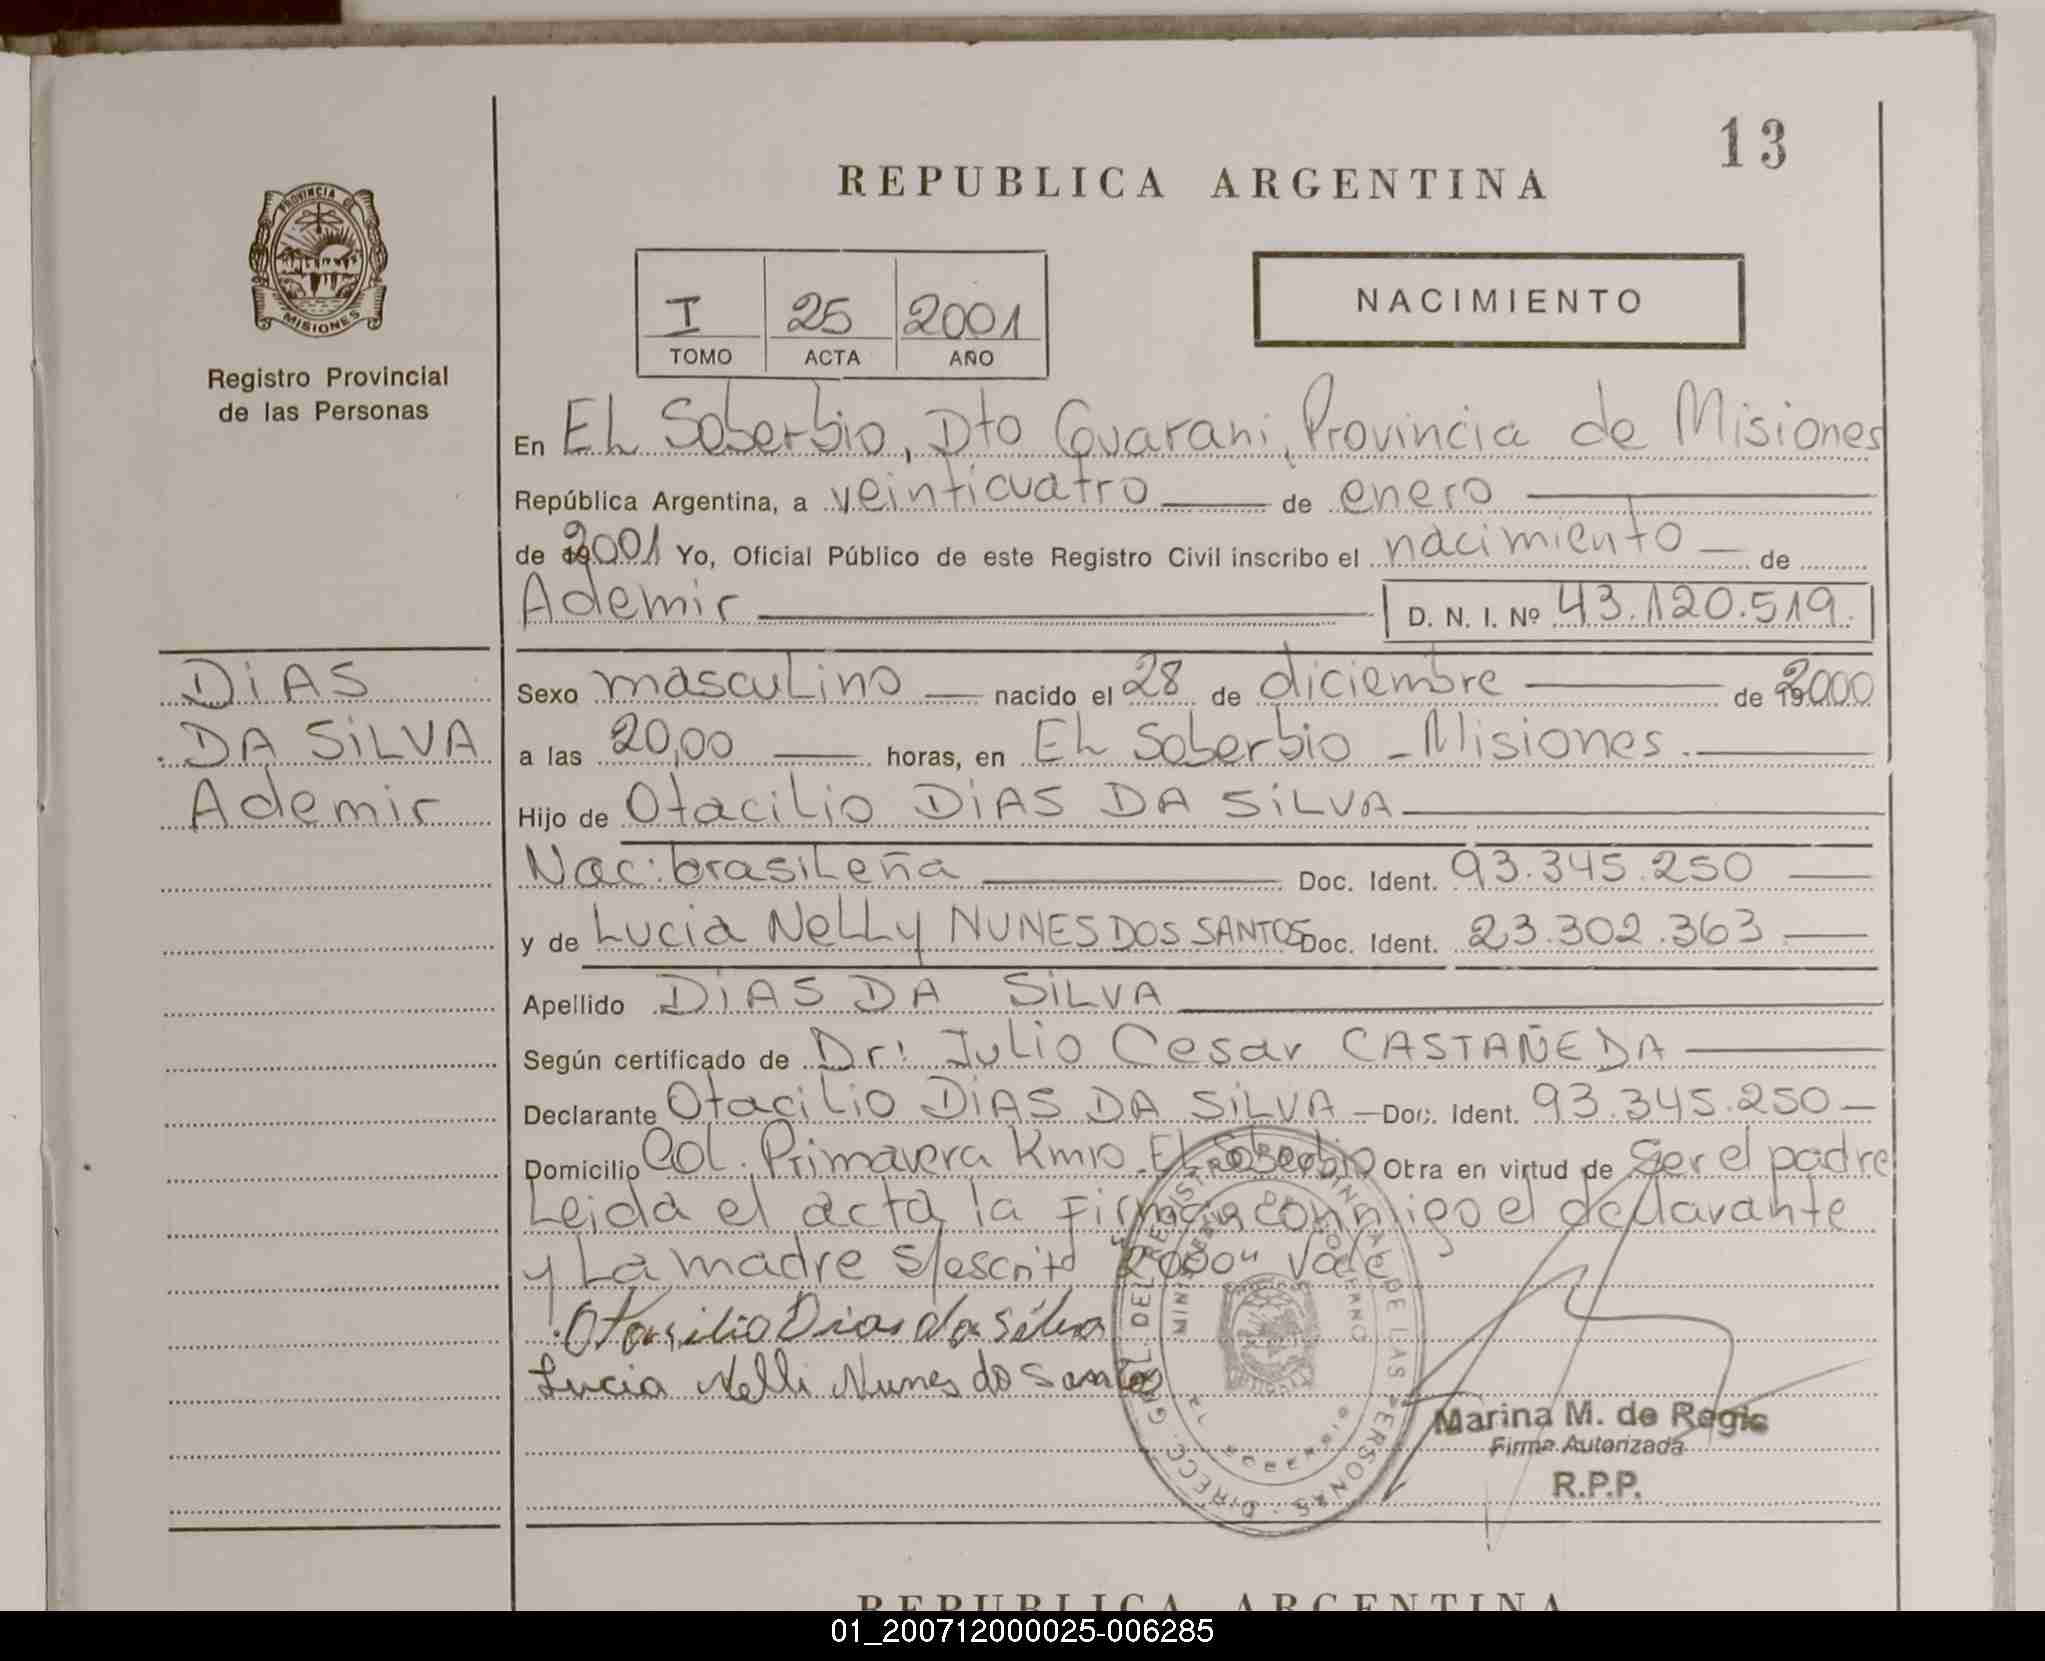 13
REPUBLICA ARGENTINA
PROVINCIA DE
MISIONES
Registro Provincial
de las Personas
I 25 2001
TOMO ACTA AÑO
NACIMIENTO
En El Soberbio, Dto Guarani, Provincia de Misiones
República Argentina, a veinticuatro de enero
de 2001 Yo, Oficial Público de este Registro Civil inscribo el nacimiento de
Ademir D. N. I. Nº 43.120.519.
DiAS
DA SiLVA
Ademir
Sexo masculino nacido el 28 de diciembre de 2000
a las 20,00 horas, en El Soberbio - Misiones.
Hijo de Otacilio DiAS DA SiLVA
Nac: brasileña Doc. Ident. 93.345.250
y de Lucia Nelly NUNES DOS SANTOS Doc. Ident. 23.302.363
Apellido DiAS DA SiLVA
Según certificado de Dr: Julio Cesar CASTAÑEDA
Declarante Otacilio DiAS DA SiLVA Doc. Ident. 93.345.250
Domicilio Col. Primavera Km10. El Soberbio Obra en virtud de ser el padre
Leida el acta, la Firman conmigo el declarante
y La madre s/escrito "2000" Vale
Otasilio Dias da Silva
Lucia Nelli Nunes do Santos
DIRECC. GRAL DEL REGISTRO PROVINCIAL DE LAS PERSONAS
MINISTERIO DE GOBIERNO
SOBERBIO
Marina M. de Regis
Firma Autorizada
R.P.P.
REPUBLICA ARGENTINA
01_200712000025-006285